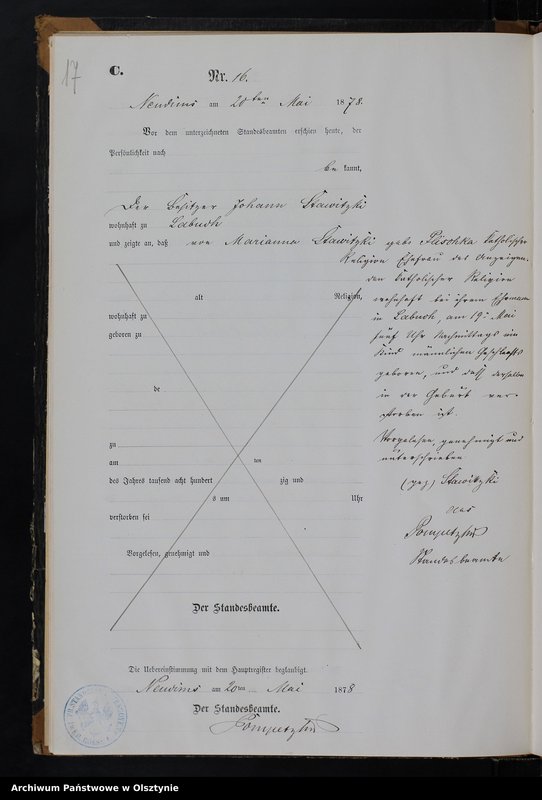 17
C.
Nr. 16.
Neudims am 20ten Mai 1878.
Vor dem unterzeichneten Standesbeamten erschien heute, der
Persönlichkeit nach
be kannt,
Der Besitzer Johann Stawitzki
wohnhaft zu Labuch
und zeigte an, daß von Marianna Stawitzki geb. katholischer
Religion Ehefrau des Anzeigen-
den katholischer Religion
wohnhaft bei ihrem Ehemann
in Labuch, am 19. Mai
fünf Uhr Nachmittags ein
Kind männlichen Geschlechts
geboren, und daß derselbe
in der Geburt ver-
storben ist.
Vorgelesen, genehmigt und
unterschrieben
(gez) Stawitzki
Der
Standesbeamte
alt Religion,
wohnhaft zu
geboren zu
de
zu
am ten
des Jahres tausend acht hundert zig und
s um Uhr
verstorben sei
Vorgelesen, genehmigt und
Der Standesbeamte.
Die Uebereinstimmung mit dem Hauptregister beglaubigt.
Neudims am 20ten Mai 1878
Der Standesbeamte.
Archiwum Państwowe w Olsztynie